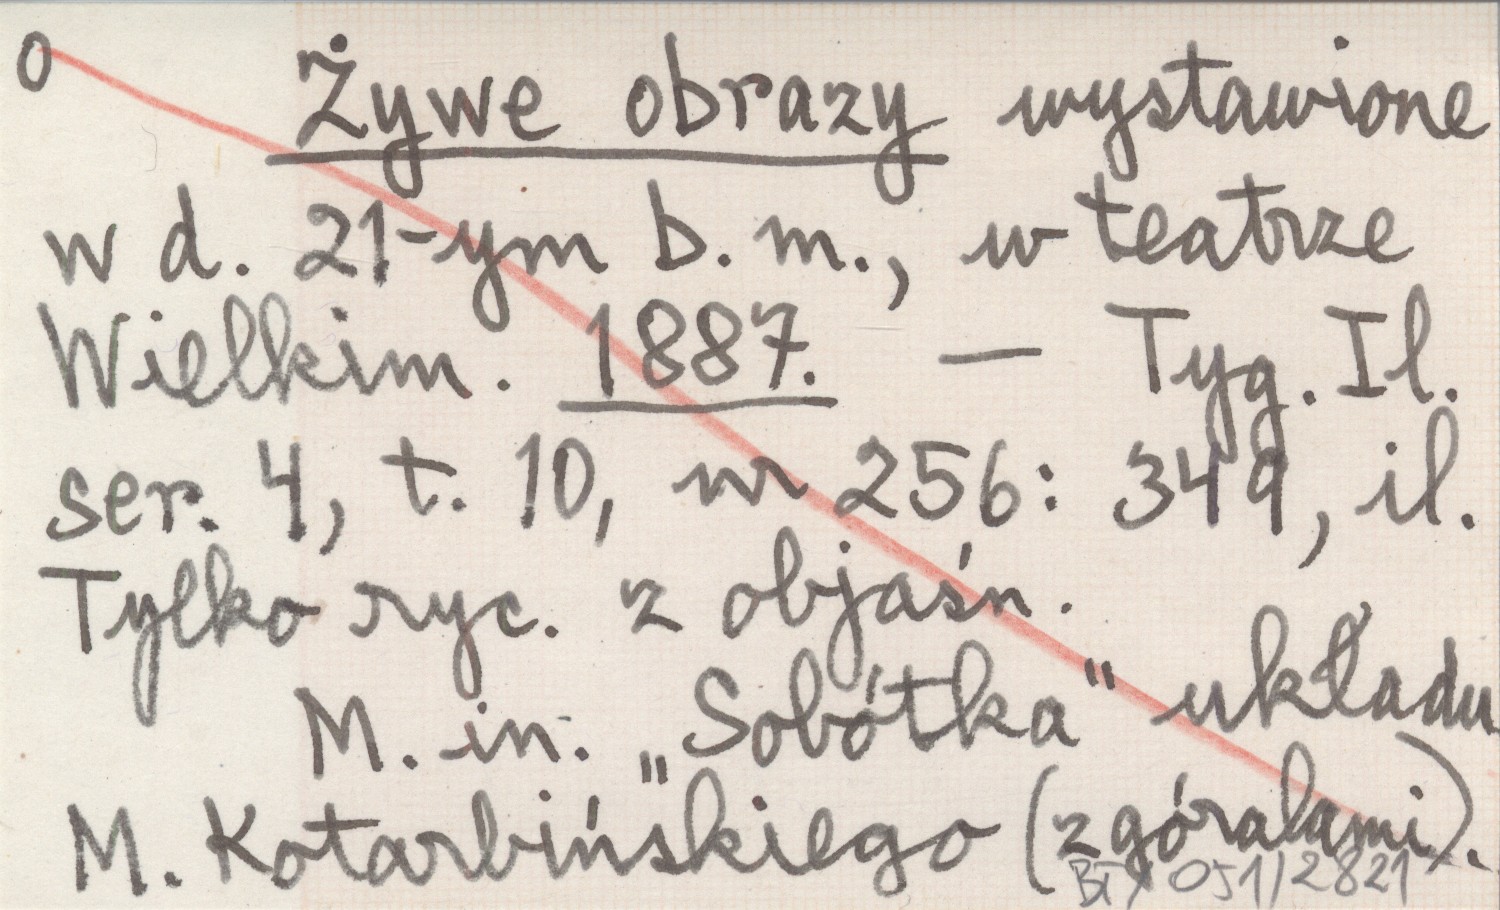 0 Żywe obrazy wystawione
w d. 21-ym b. m., w teatrze
Wielkim. 1887. — Tyg. Il.
ser. 4, t. 10, nr 256: 349, il.
Tylko ryc. z objaśn.
M. in. „Sobótka" układu
M. Kotarbińskiego (z góralami).
051/2821